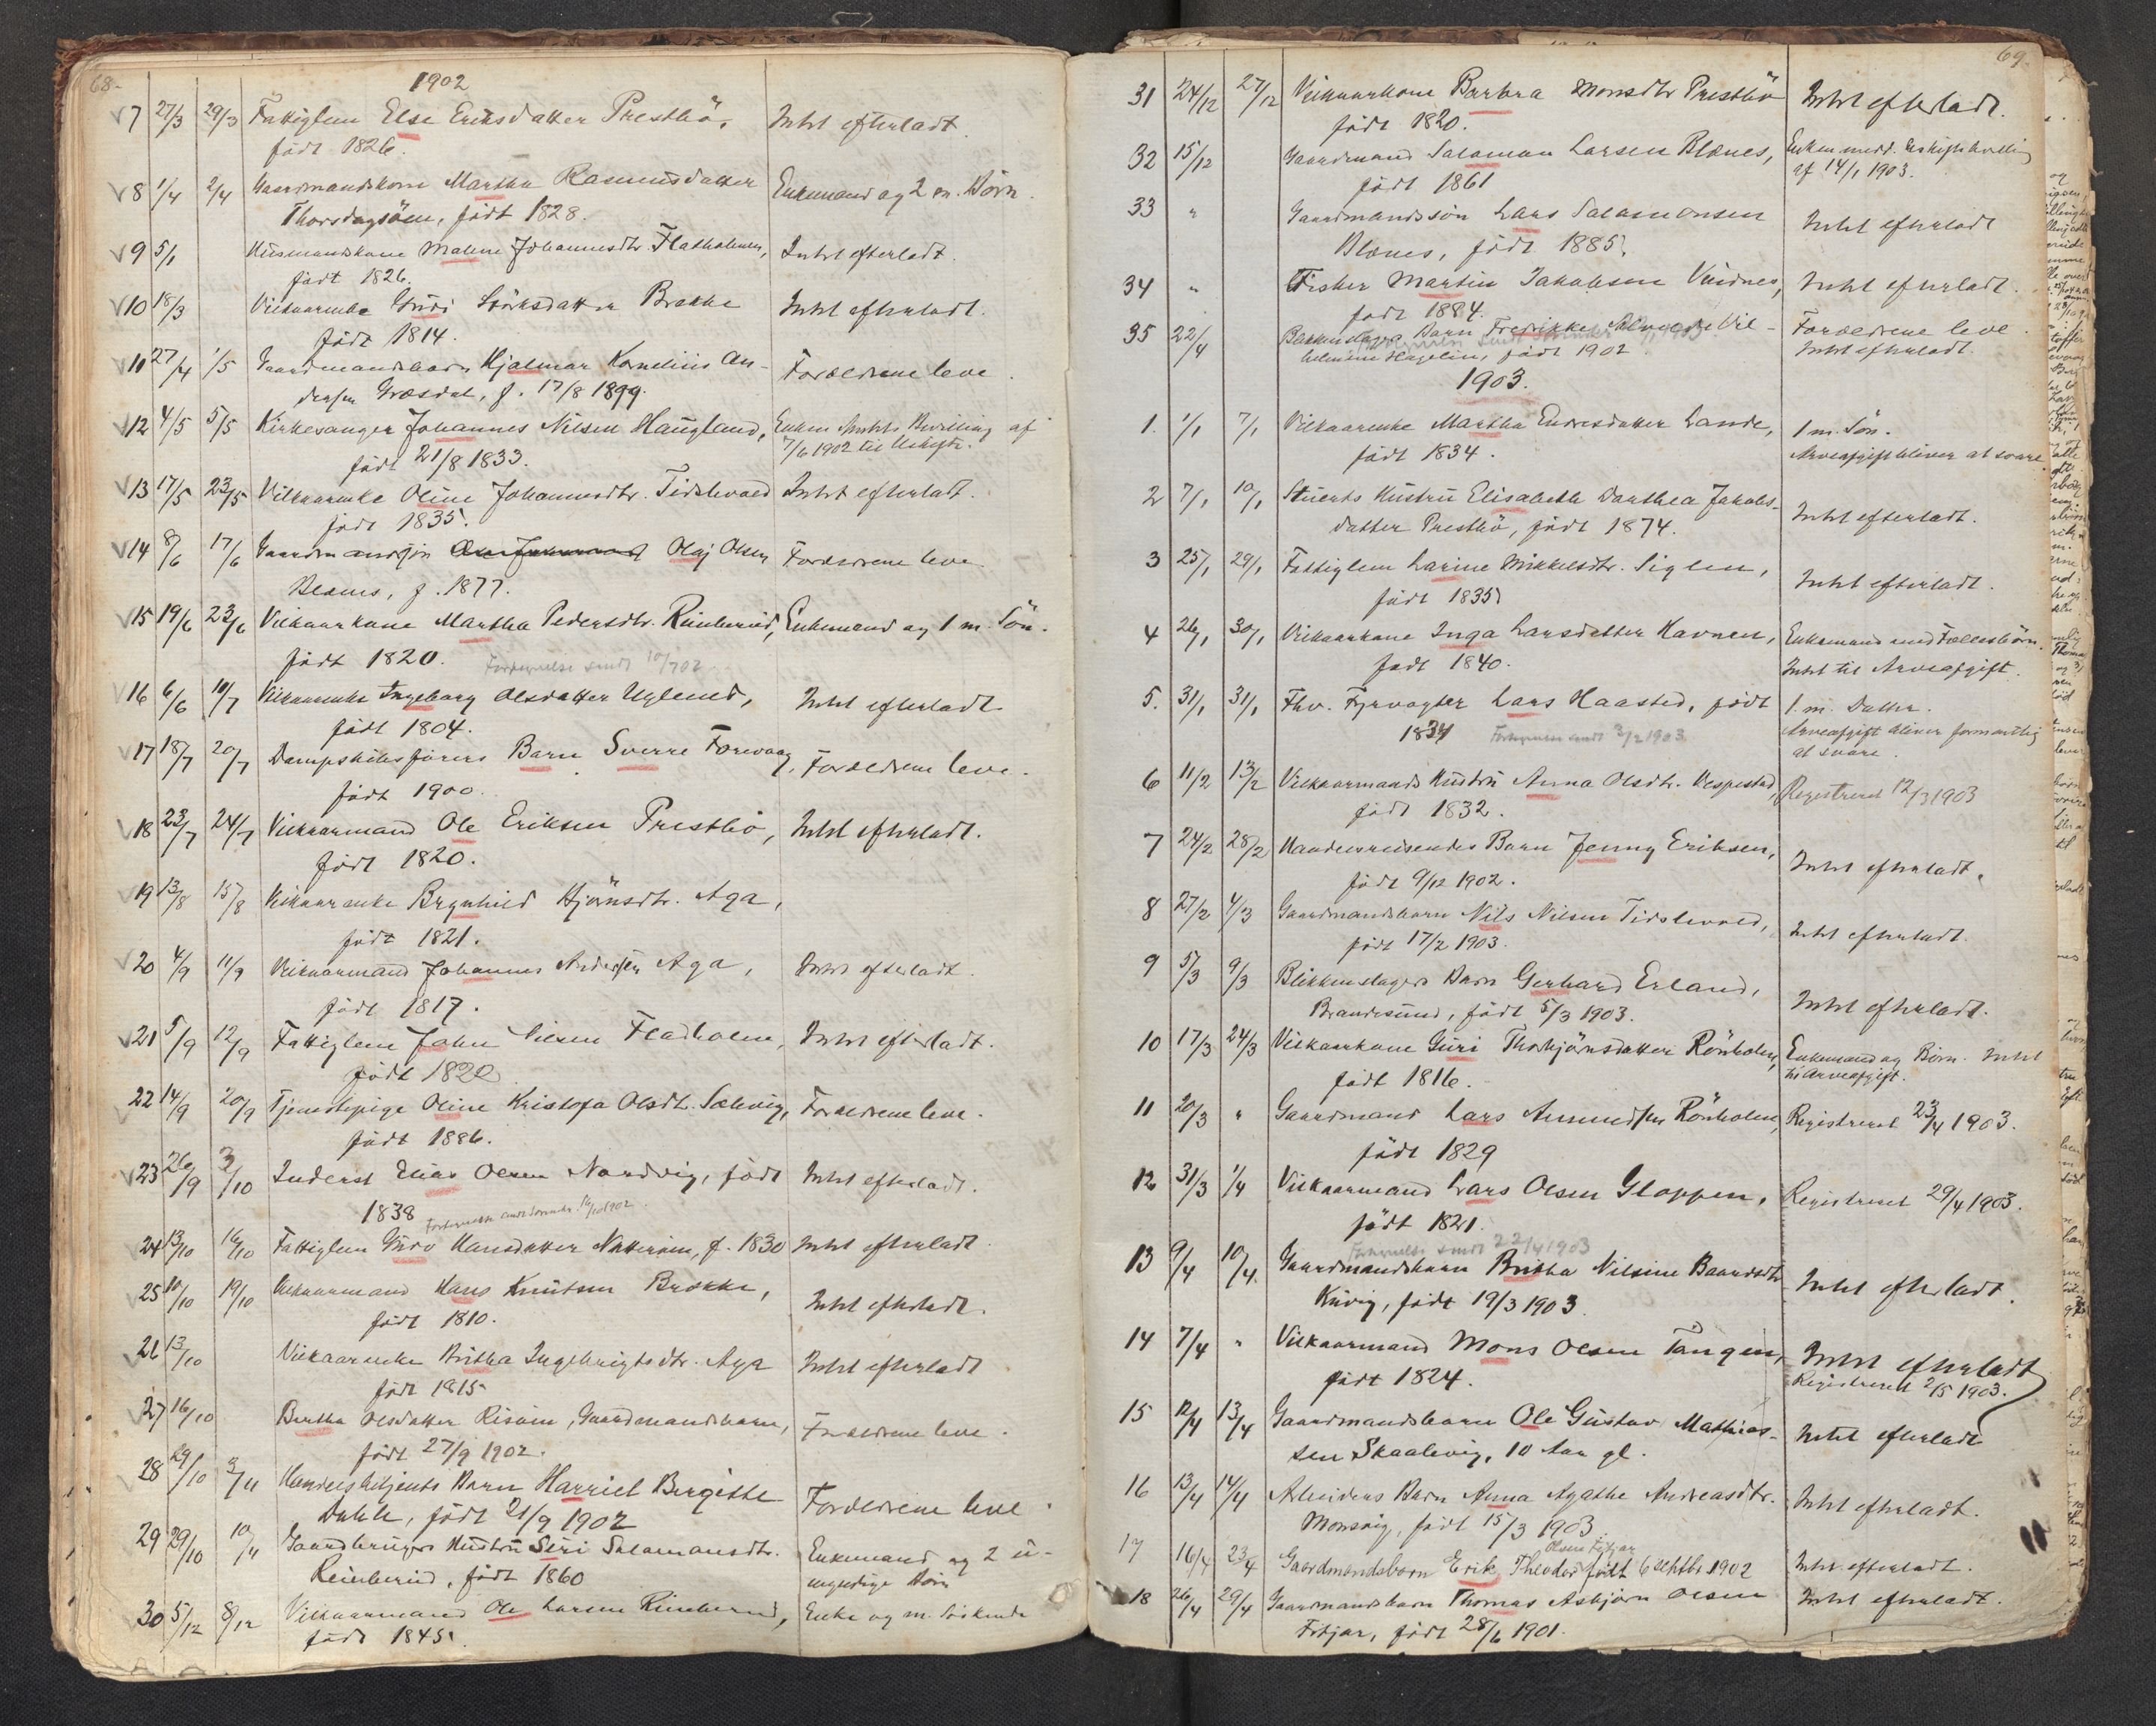 68.
1902
7 27/3 29/3 Fattiglem Else Eriksdatter Prestbö, Intet efterladt.
født 1826.
8 1/4 2/4 Gaardmandskone Martha Rasmusdatter Enkemand og 2 m. Börn.
født 1828.
9 5/1 Husmandskone Malene Johannesdtr. Flatholmen, Intet efterladt.
født 1826.
10 18/3 Vilkaarenke Guri Brekke Intet efterladt.
født 1814.
11 27/4 1/5 Gaardmandsbarn Hjalmar Kornelius An- Forældrene leve.
dersen Græsdal, f. 17/8 1899.
12 4/5 5/5 Kirkesanger Johannes Nilsen Haugland, Enken Amtets Bevilling af
født 21/8 1833. 7/6 1902 til Uskiftr.
13 17/5 23/5 Vilkaarenke Oline Johannesdtr. Tislevold Intet efterladt.
født 1835.
14 8/6 17/6 Gaardmandsøn Olaj Olsen Forældrene leve
Blænes, f. 1877.
15 19/6 23/6 Vilkaarkone Martha Pedersdtr. Rimbereid, Enkemand og 1 m. Sön.
født 1820. Fortegnelse sendt 10/7 02
16 6/6 10/7 Vilkaarenke Ingeborg Olsdatter Uglenes, Intet efterladt
født 1804.
17 18/7 20/7 Dampskibsförers Barn Sverre Forevaag, Forældrene leve.
født 1900.
18 23/7 24/7 Vilkaarmand Ole Eriksen Prestbö, Intet efterladt.
født 1820.
19 13/8 15/8 Vilkaarenke Brynhild Aga,
født 1821.
20 4/9 11/9 Vilkaarmand Johannes Andersen Aga, Intet efterladt.
født 1817.
21 5/9 12/9 Fattiglem John Nilsen Fladholm, Intet efterladt.
født 1822
22 14/9 20/9 Tjenestepige Oline Kristofa Olsdtr. Sælevig, Forældrene leve.
født 1886.
23 26/9 3/10 Inderst Elias Olsen Nordvig, født Intet efterladt.
1838
24 13/10 16/10 Fattiglem Guro Hansdatter, f. 1830 Intet efterladt
25 10/10 19/10 Vilkaarmand Hans Knutsen Brekke, Intet efterladt.
født 1810.
26 13/10 Vilkaarenke Britha Ingebrigtsdtr. Aga Intet efterladt
født 1815
27 16/10 Bertha Olsdatter Risöen, Gaardmandsbarn, Forældrene leve.
født 27/9 1902.
28 29/10 3/11 Handelsbetjents Barn Harriet Birgitte Forældrene leve
Dahle, født 21/9 1902
29 29/10 10/11 Gaardbrugers Hustru Siri Salamonsdtr. Enkemand og 2 u-
Reimbereid, født 1860 myndige Börn
30 5/12 8/12 Vilkaarmand Ole Larsen Rimbereid, Enke og m. Söskende
født 1845.
69.
31 24/12 27/12 Vilkaarkone Barbra Monsdtr Prestbö Intet efterladt.
født 1820.
32 15/12 Gaardmand Salamon Larsen Blænes, Enken medd. Uskiftebevilling
født 1861 af 14/1 1903.
33 " Gaardmandssön Lars Salamonsen Intet efterladt
Blænes, født 1885.
34 " Fisker Martin Jakobsen Vinnes, Intet efterladt.
født 1884.
35 22/4 Barn Fredrikke Vil- Forældrene leve.
helmine Hagelin, født 1902. Intet efterladt.
1903.
1. 1/1 7/1 Vilkaarenke Martha Endresdatter Lande, 1 m. Sön.
født 1834. Arveafgift bliver at svare.
2 7/1 10/1 Stuerts Hustru Elisabeth Dorthea Jakobs-
datter Prestbö, født 1874. Intet efterladt.
3 25/1 29/1 Fattiglem Larine Mikkelsdtr. Siglen, Intet efterladt.
født 1835.
4 26/1 30/1 Vilkaarkone Inga Larsdatter Havnen, Enkemand med Fællesbörn.
født 1840. Intet til Arveafgift.
5. 31/1 31/1 Fhv. Fyrvogter Lars Haasted, født 1 m. Datter.
1834 Fortegnelse sendt 3/2 1903 Arveafgift bliver formentlig
at svare.
6 11/2 13/2 Vilkaarmands Hustru Anna Olsdtr. Vespestad, Registreret 12/3 1903
født 1832.
7 24/2 28/2 Handelsreisendes Barn Jenny Eriksen, Intet efterladt.
født 9/12 1902.
8 27/2 4/3 Gaardmandsbarn Nils Nilsen Tislevold, Intet efterladt.
født 17/2 1903.
9 5/3 9/3 Blikkenslagers Barn Gerhard Erland,
Brandesund, født 5/3 1903. Intet efterladt.
10 17/3 24/3 Vilkaarkone Guri Thorbjörnsdatter Rönholm, Enkemand og Börn. Intet
født 1816. til Arveafgift.
11 20/3 " Gaardmand Lars Amundsen Rönholm, Registreret 23/4 1903.
født 1829
12 31/3 1/4 Vilkaarmand Lars Olsen Gloppen, Registreret 29/4 1903.
født 1821.
Fortegnelse sendt 22/4 1903
13 9/4 10/4. Gaardmandsbarn Britha Nilsine Baardsdtr Intet efterladt.
født 19/3 1903
14 7/4 " Vilkaarmand Mons Olsen Tangen, Intet efterladt
født 1824. Registreret 2/5 1903.
15 12/4 13/4 Gaardmandsbarn Ole Gustav Mathias- Intet efterladt
sen Skaalevig, 10 Aar gl.
16 13/4 14/4 Arbeiders Barn Anna Agathe Andreasdtr. Intet efterladt.
Monsvig, født 15/3 1903
Olsen Fitjar
17 16/4 23/4 Gaardmandsbarn Erik Theodor født 6 Septbr 1902 Intet efterladt.
18 26/4 29/4 Gaardmandsbarn Thomas Asbjörn Olsen Intet efterladt.
Fitjar, født 28/6 1901.